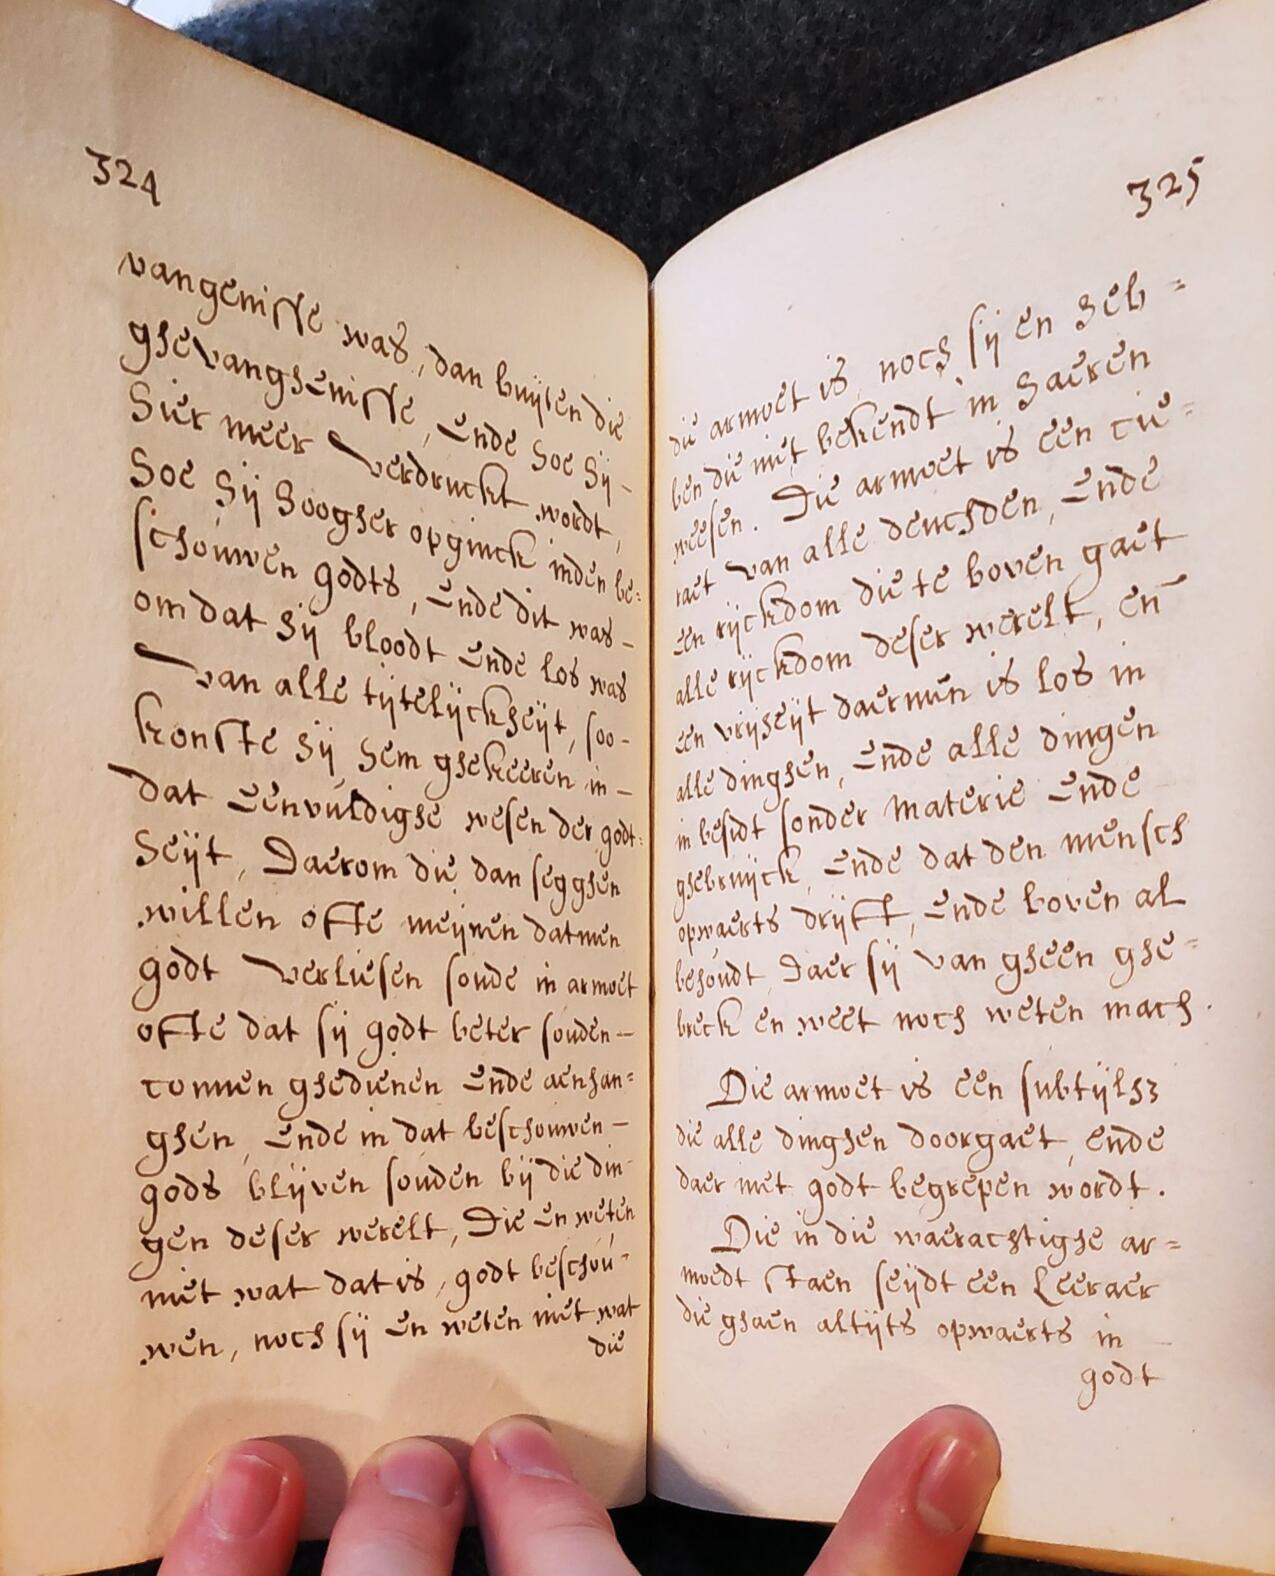 324
vangenisse was, dan buijten die
ghevanghenisse, Ende hoe sij
hier meer verdruckt wordt,
hoe sij hoogher opginck inden be:
schouwen godts, Ende dit was
om dat sij bloodt Ende los was
van alle tijtelijckheijt, soo
konste sij hem ghekeeren in
dat Eenvuldighe wesen der godt:
heijt, Daerom die dan segghen
willen ofte meijnen datmen
godt verliesen soude in armoet
ofte dat sij godt beter souden
connen ghedienen Ende aenhan=
ghen, Ende in dat beschouwen
gods blijven souden bij die din
gen deser werelt, Die En weten
niet wat dat is, godt beschou=
wen, noch sij En weten niet wat
die
325
die armoet is, noch sij en heb=
ben die niet bekendt in haeren
weesen. Die armoet is een cie=
raet van alle deuchden, Ende
een rijckdom die te boven gaet
alle rijckdom deser werelt, en̄
een vrijheijt daermen is los in
alle dinghen, Ende alle dingen
in besidt sonder materie Ende
ghebruijck, Ende dat den mensch
opwaerts drijft, Ende boven al
behoudt, Daer sij van gheen ghe=
breck en weet noch weten mach.
Die armoet is een
die alle dinghen doorgaet, ende
daer met godt begrepen wordt.
Die in die waerachtighe ar=
moedt staen seijdt een Leeraer
die ghaen altijts opwaerts in
godt